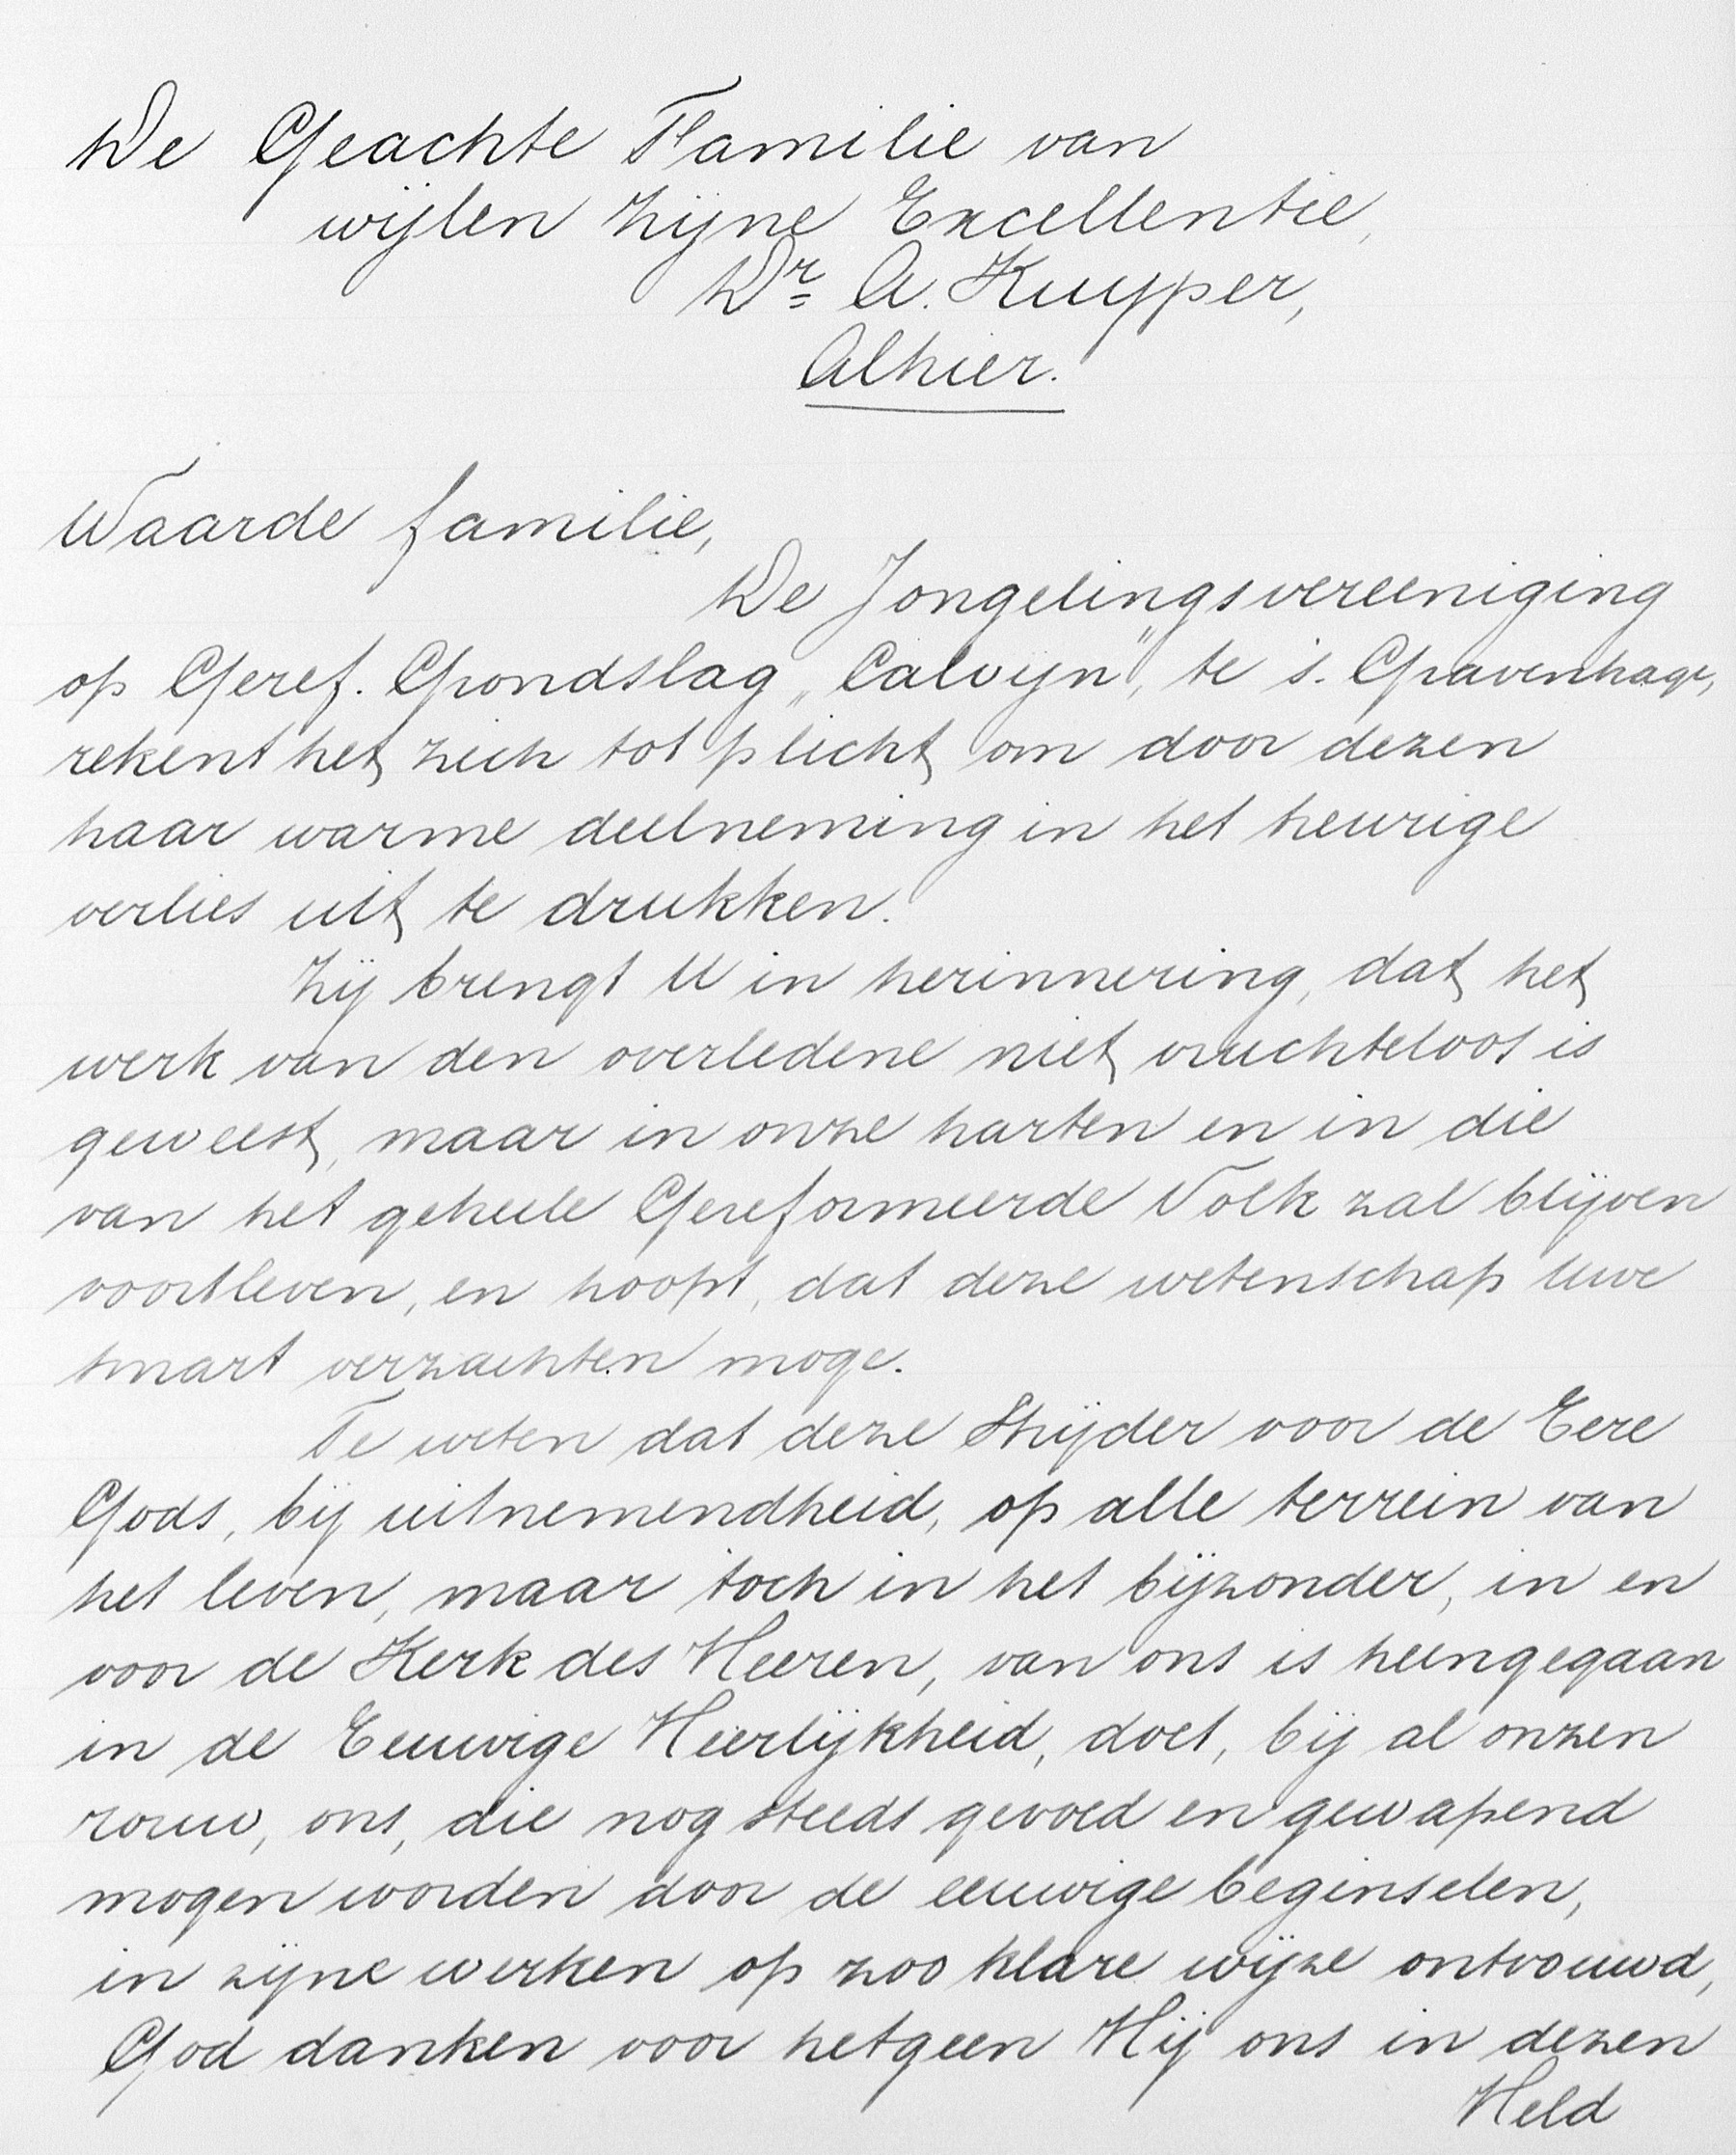 De Geachte Familie van
wijlen Zijne Excellentie,
Dr. A. Kuyper,
Alhier.
Waarde familie,
De Jongelingsvereeniging
op Geref. Grondslag „Calvijn", te 's. Gravenhage,
rekent het zich tot plicht om door dezen
haar warme deelneming in het heurige
verlies uit te drukken.
Zij brengt U in herinnering, dat het
werk van den overledene niet vruchteloos is
geweest, maar in onze harten en in die
van het geheele Gereformeerde Volk zal blijven
voortleven, en hoopt, dat deze wetenschap Uwe
smart verzachten moge.
Te weten dat deze Strijder voor de Eere
Gods, bij uitnemendheid, op alle terrein van
het leven, maar toch in het bijzonder, in en
voor de Kerk des Heeren, van ons is heengegaan
in de Eeuwige Heerlijkheid, doet, bij al onzen
rouw, ons, die nog steeds gevoed en gewapend
mogen worden door de eeuwige beginselen,
in zijne werken op zoo klare wijze ontvouwd,
God danken voor hetgeen Hij ons in dezen
Held